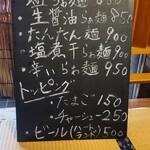 ・生醤油らぁ麺 850
・たんたん麺 900
・塩煮干らぁ麺 900
・辛いらぁ麺 950
トッピング
・たまご 150
・チャーシュー 250
・ビール 500